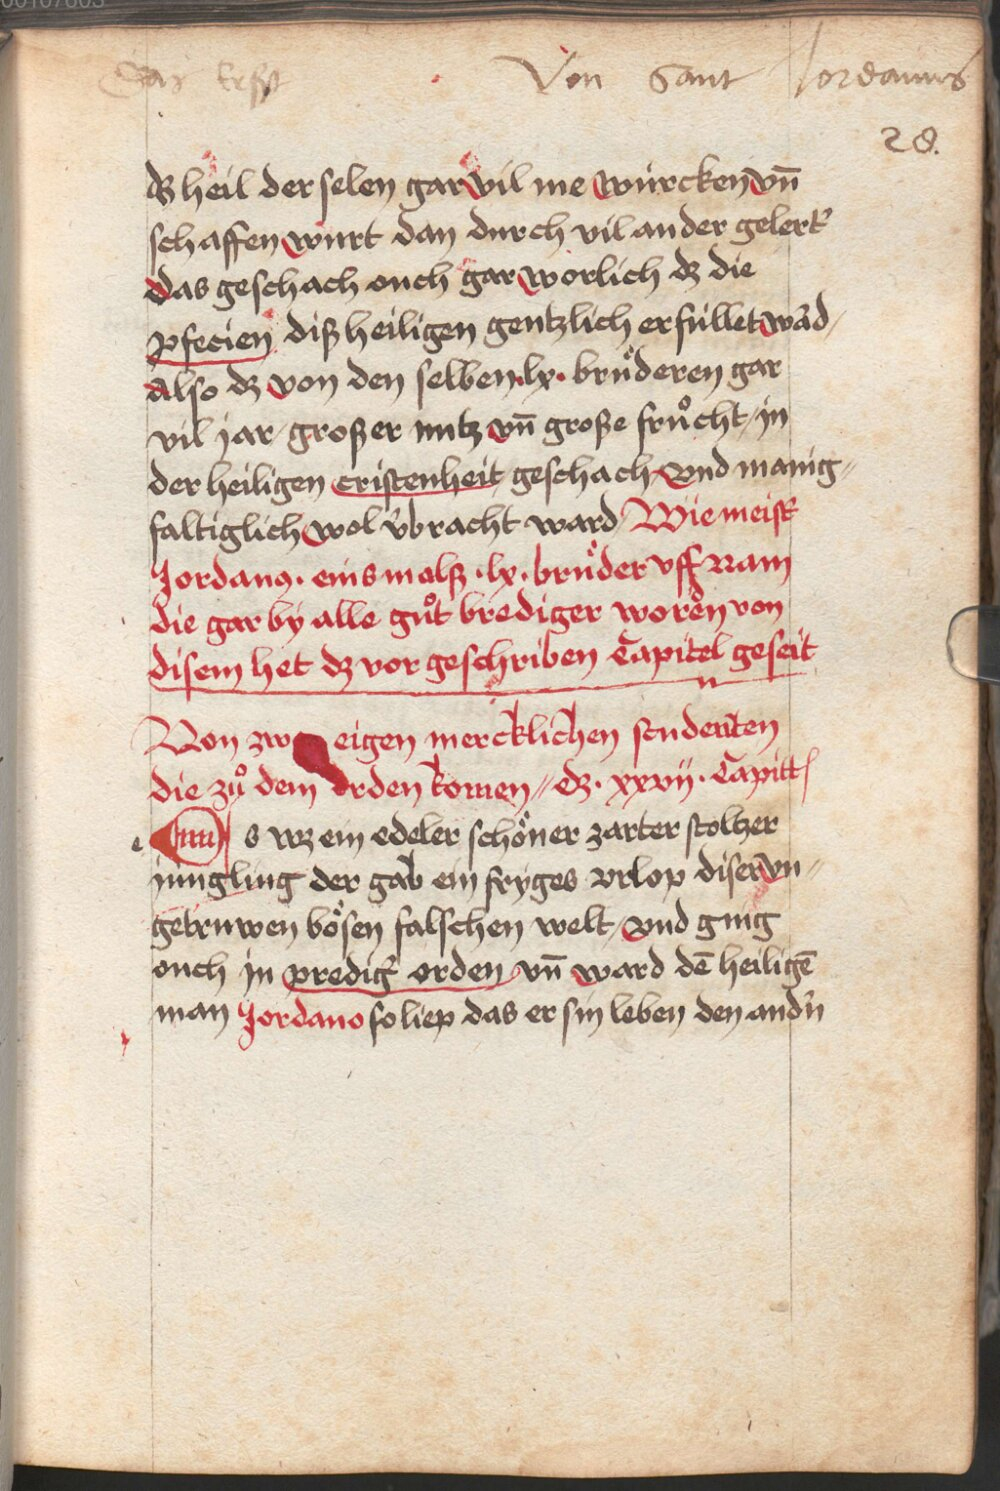 Von Sant Jordanus
28.
dz heil der selen gar vil me würcken vn̄
schaffen wurt dan durch vil ander gelert
das geschach ouch gar worlich dz die
pfecien diß heiligen gentzlich erfüllet wād
Also dz von den selben .lx. bruͤderen gar
vil jar großer nutz vn̄ große fruͦcht in
der heiligen cristenheit geschach vnd manig
faltiglich wol v̓bracht ward Wie meist̓
Jordanꝯ. eins malß .lx. bruͤder vff nam
die gar by alle guͦt brediger woren von
disem het dz vorgeschriben Capitel geseit
Von zw eigen mercklichen studenten
die zuͦ dem orden komen dz. xxvij. Capitt
s wz ein edeler schöner zarter stoltzer
jungling der gab ein fryges vrlop diser vn
getruwen bösen falschen welt vnd ging
ouch in predig̓ orden vn̄ ward dē heiligē
man Jordano so liep das er sin leben den andn̓